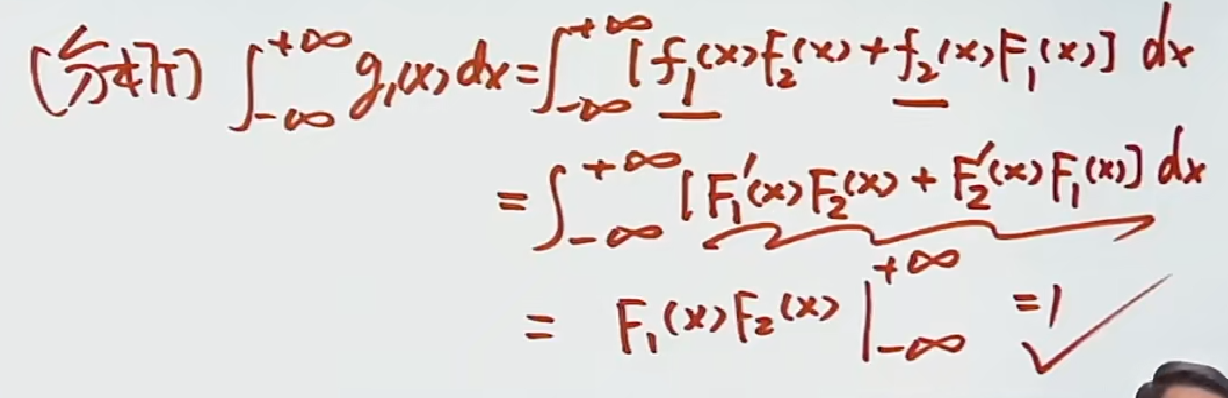 (分析) ∫_{-∞}^{+∞} g₁(x) dx = ∫_{-∞}^{+∞} [f₁(x)F₂(x) + f₂(x)F₁(x)] dx
= ∫_{-∞}^{+∞} [F₁'(x)F₂(x) + F₂'(x)F₁(x)] dx
= F₁(x)F₂(x) |_{-∞}^{+∞} = 1 ✓